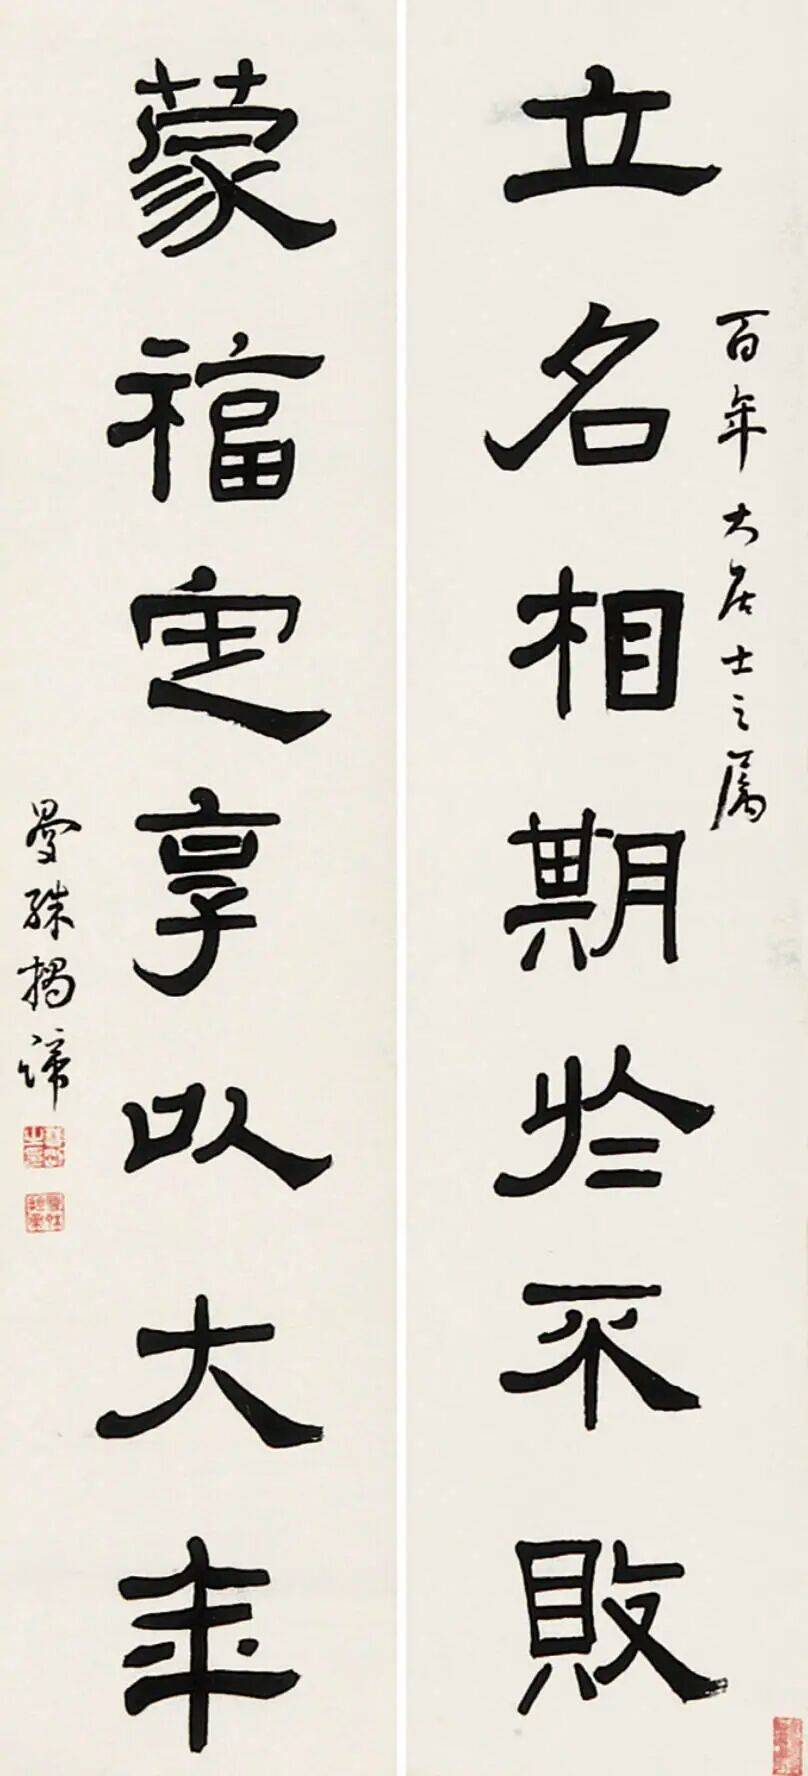 百年大居士之屬
立名相期於不敗
蒙福定享以大年
曼殊揭諦